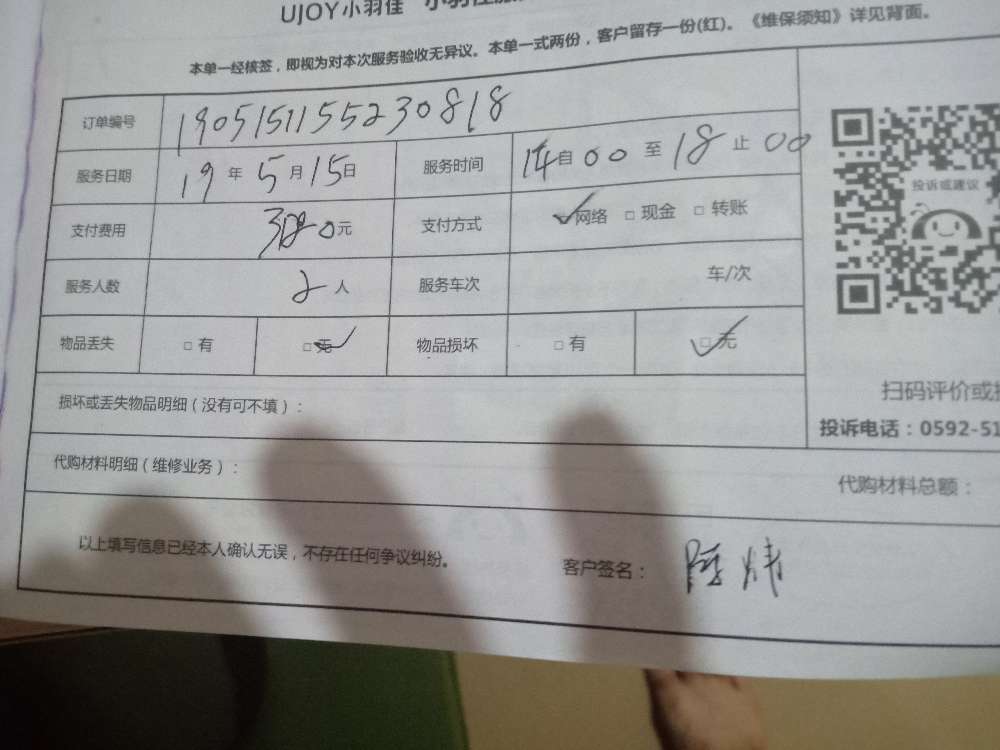 UJOY小羽佳 小羽佳
本单一经核签，即视为对本次服务验收无异议。本单一式两份，客户留存一份(红)。《维保须知》详见背面。
订单编号 1905151155230818
服务日期 19年5月15日 服务时间 14自00至18止00
支付费用 元 支付方式 ☑网络 □现金 □转账
服务人数 2人 服务车次 车/次
物品丢失 □有 ☑无 物品损坏 □有 ☑无
投诉或建议
扫码评价或
投诉电话：0592-51
损坏或丢失物品明细（没有可不填）：
代购材料明细（维修业务）：
代购材料总额：
以上填写信息已经本人确认无误，不存在任何争议纠纷。
客户签名：陈炜